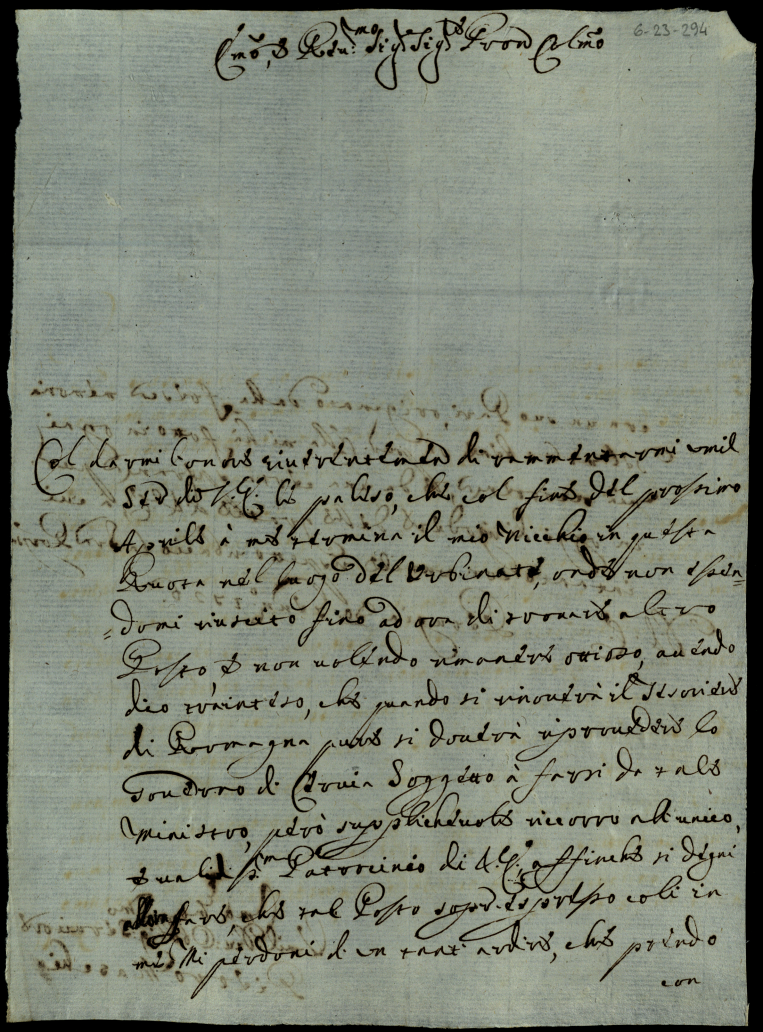 6-23-294
Emo, e Reu.mo Sig.r Sig.r e Pron Colmo
Col darmi l'onore riuerentemente di rammentarmi umil
Ser.e di V.E. le paleso, che col fine del prossimo
Aprile à me termina il mio Nicchio in questa
Ruota nel luogo del Urbinate, onde non essen=
=domi riuscito fino ad ora di trouare altro
Posto, e non uolendo rimanere ottioso, auendo
dico inteso, che quando si rinouerà il Tesoriere
di Romagna pure si dourà riprouedere lo
Gouerno di Ceruia Soggetto à farsi da tale
Ministro, però supplicheuole ricorro all'unico,
e ualid.mo Patrocinio di V.E. affinche si degni
fare, che tal Posto sopr'espresso coli in
me. Mi perdoni di un tant'ardire, che prendo
con